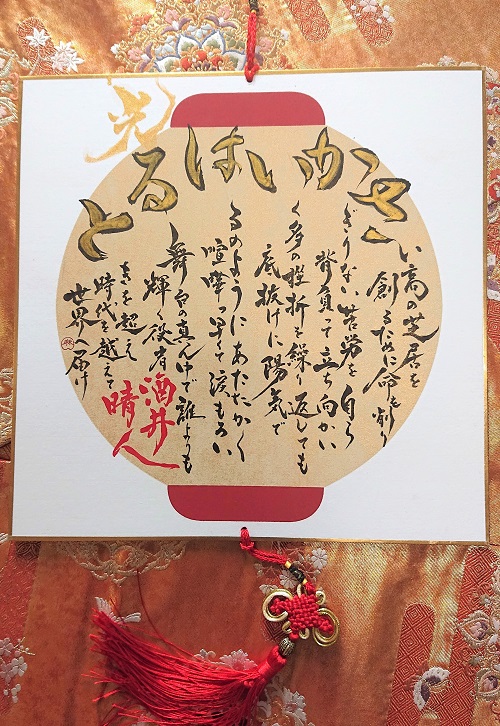 光
さかいはると
い高の芝居を
創るために命を削り
ぎりない苦労を自ら
背負って立ち向かい
く多の挫折を繰り返しても
底抜けに陽気で
るのようにあたたかく
喧嘩っ早くて涙もろい
舞台の真ん中で誰よりも
輝く役者
酒井
晴人
きを超え
時代を越えて
世界へ届け